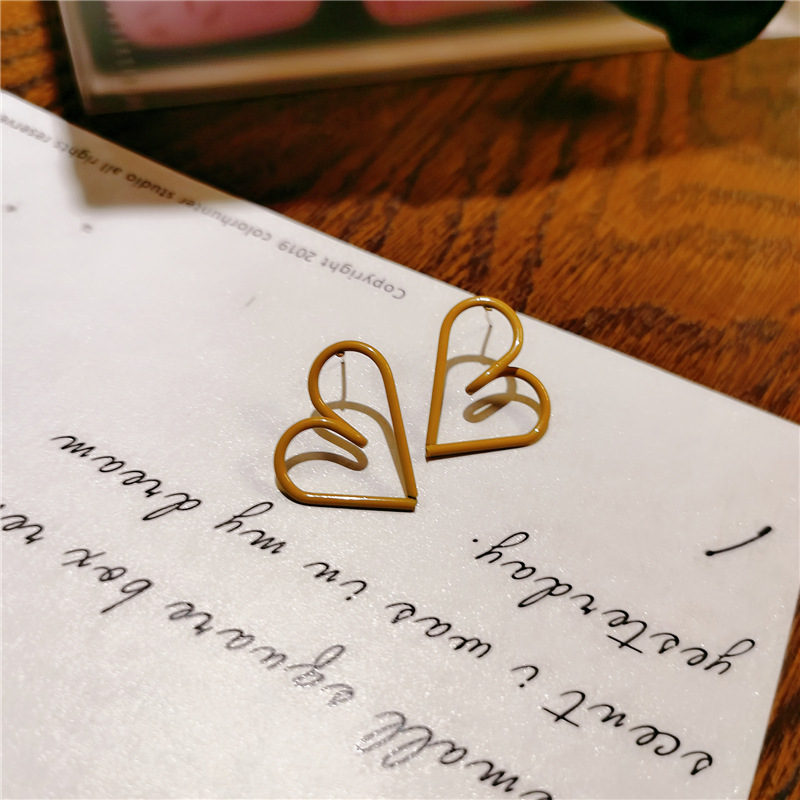 small square box re
scent i was in my dream
yesterday.
Copyright 2019 colorhunter studio all rights reserve